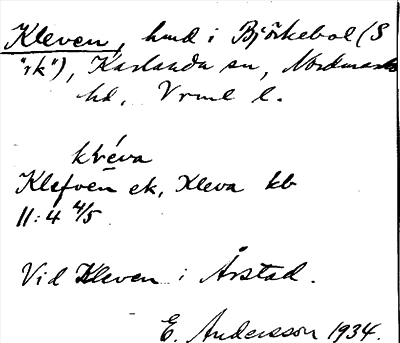 Kleven, hmd i Björkebol (S
"rk"), Karlanda sn, Nordmarks
hd, Vrml l.
kléva
Klefven ek, Kleva kb
II:4 4/5
Vid Kleven i Årstad.
E. Andersson 1934.